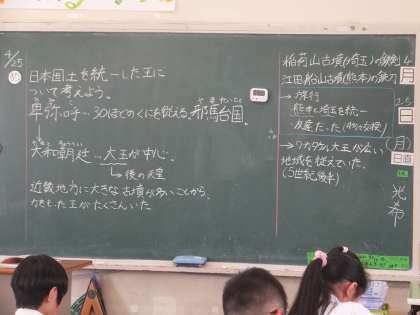 4/25
め
日本国土を統一した王に
ついて考えよう。
ひみこ
卑弥呼…30ほどのくにを従える。邪馬台国。
やまたいこく
大和朝廷…大王が中心。
→後の天皇
近畿地方に大きな古墳が多いことから、
力をもった王がたくさんいた
稲荷山古墳(埼玉)の鉄剣
江田船山古墳(熊本)の鉄刀
→旅行
熊本と埼玉を統一
友達だった
→ワカタケル大王が広い
地域を従えていた。
(5世紀後半)
4
月
25
日
(月)
日直